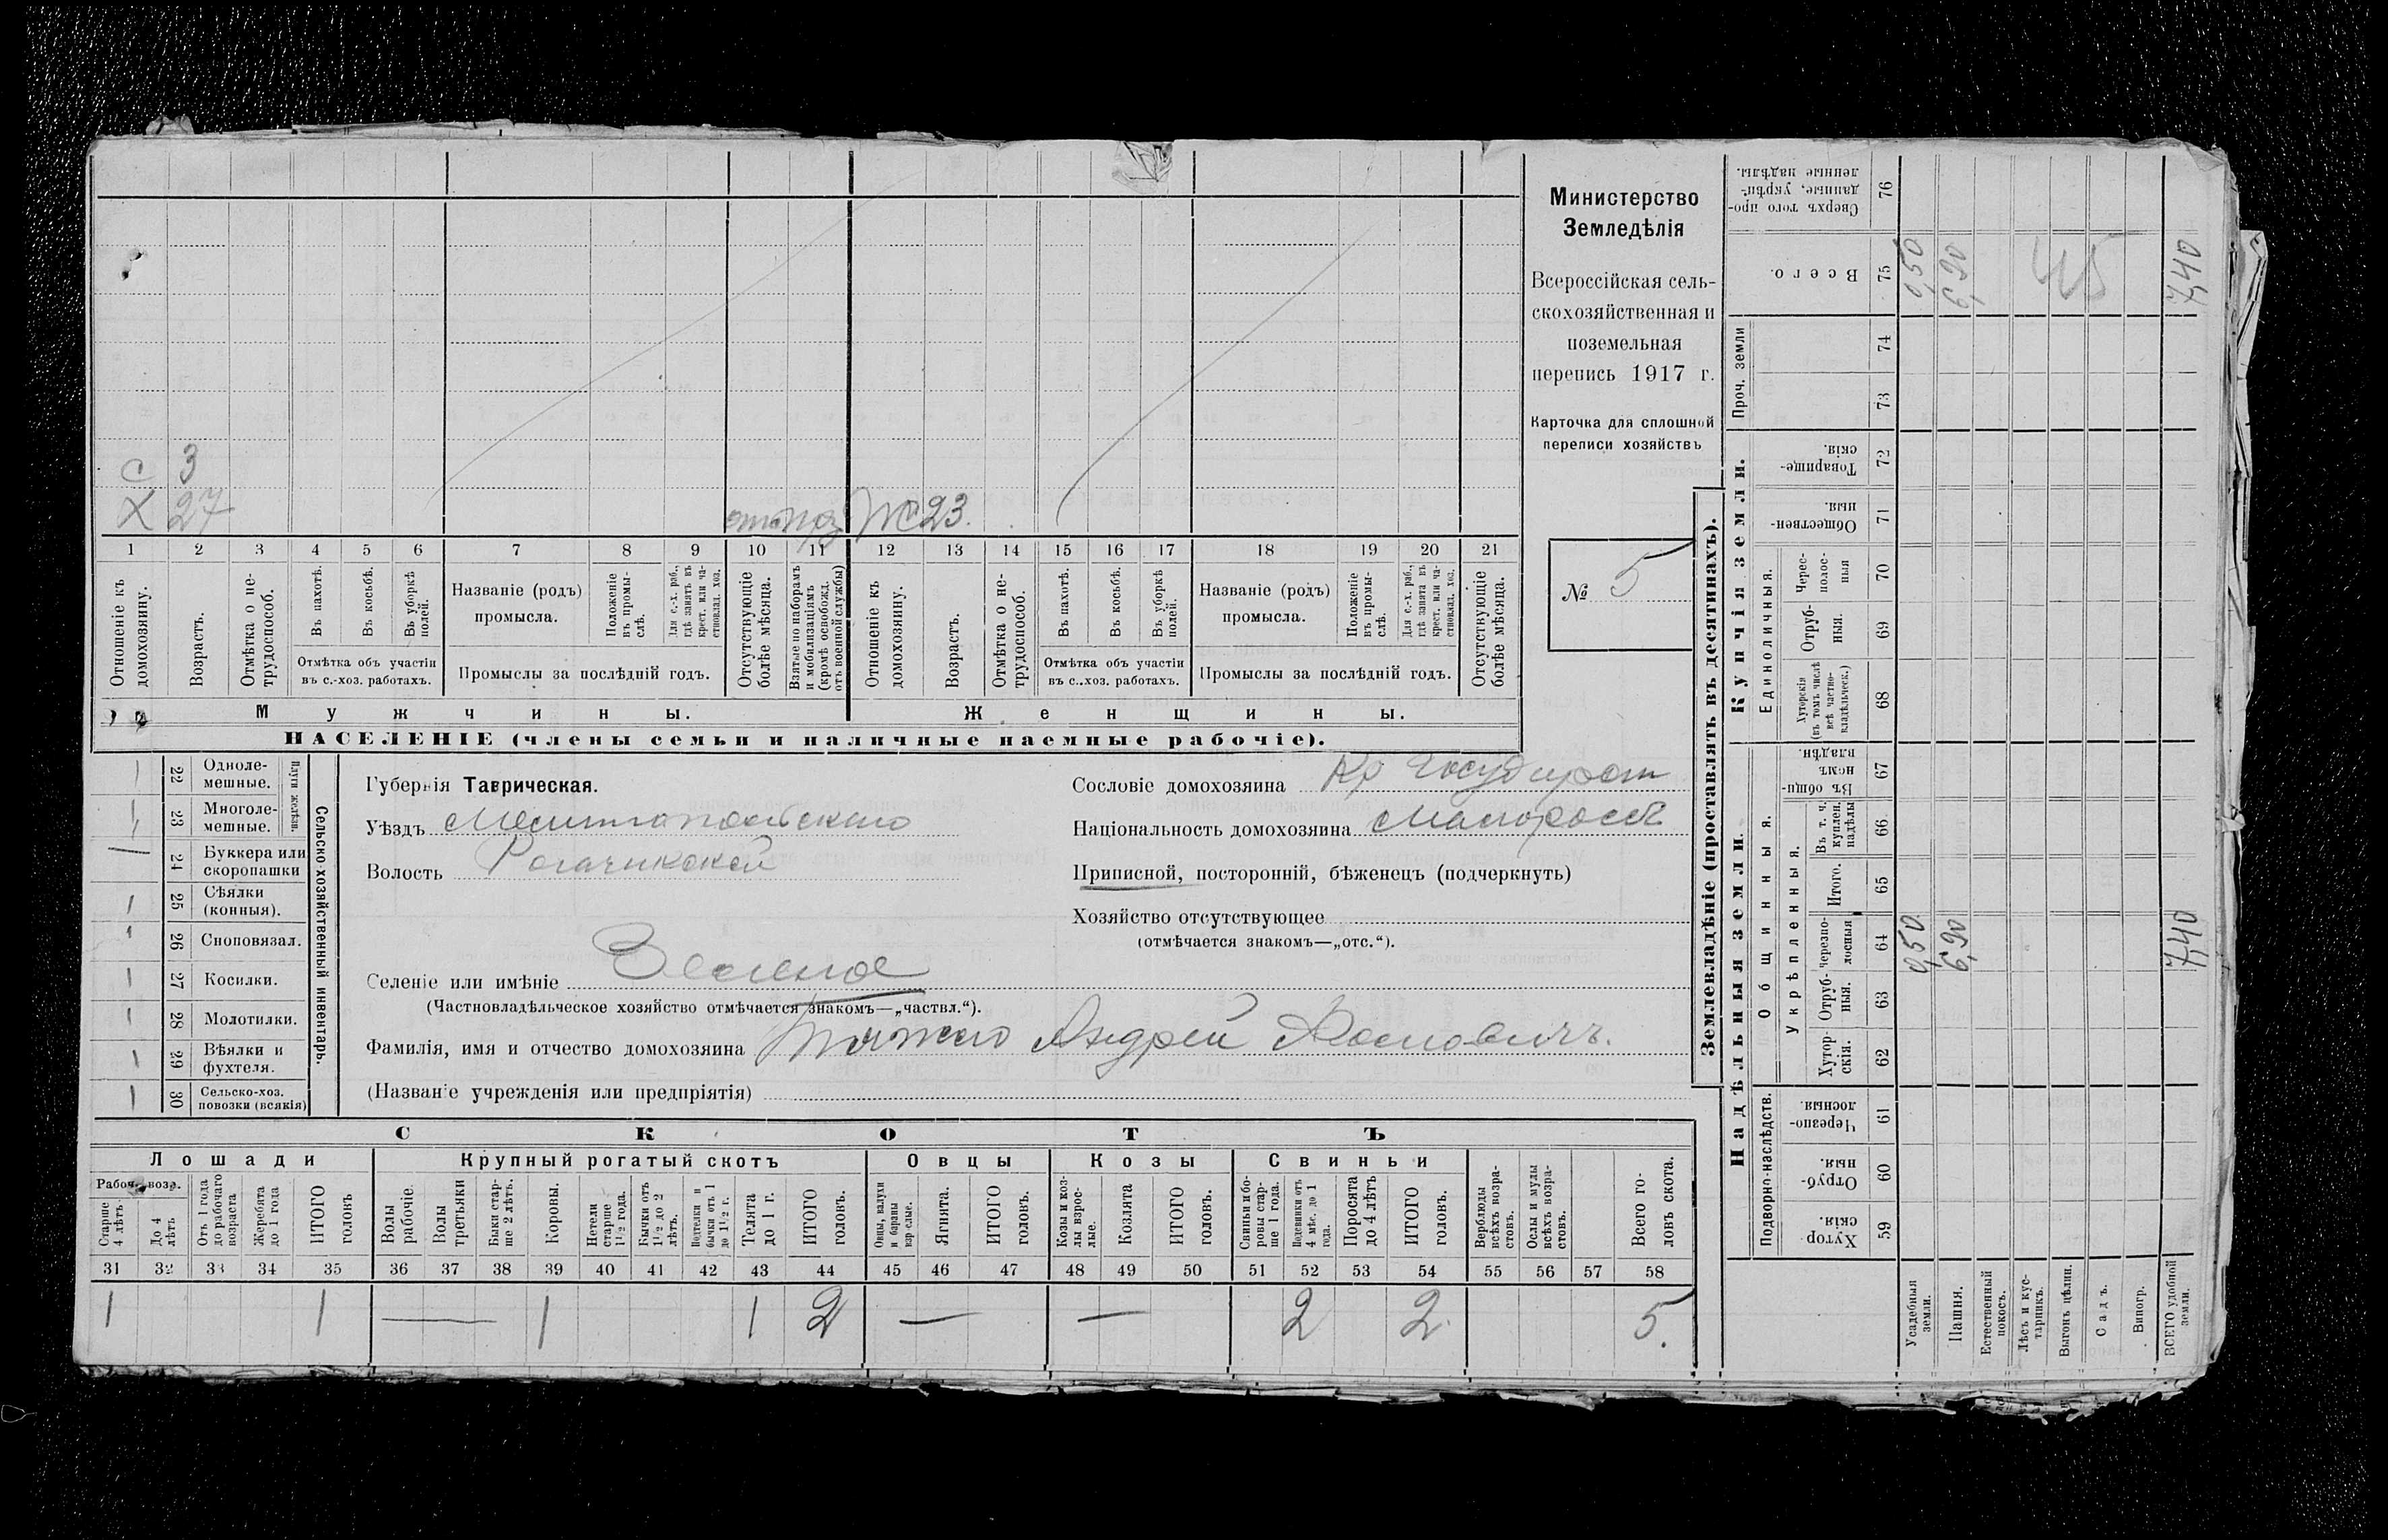 с 3
х 27 Ж 23.
1 2 3 4 5 6 7 8 9 10 11 12 13 14 15 16 17 18 19 20 21
Отношеніе къ домохозяину.
Возрастъ.
Отмѣтка о не-трудоспособ.
Въ пахотѣ.
Въ косьбѣ.
Въ уборкѣ полей.
Отмѣтка объ участіи
въ с.-хоз. работахъ.
Названіе (родъ)
промысла.
Положеніе въ промы-слѣ.
Для с.-х. раб., гдѣ занятъ въ крест. или ча-стновлад. хоз.
Промыслы за послѣдній годъ.
Отсутствующіе болѣе мѣсяца.
Взятые по наборамъ и мобилизаціямъ (кромѣ освобожд. отъ военной службы)
Отношеніе къ домохозяину.
Возрастъ.
Отмѣтка о не-трудоспособ.
Въ пахотѣ.
Въ косьбѣ.
Въ уборкѣ полей.
Отмѣтка объ участіи
въ с.-хоз. работахъ.
Названіе (родъ)
промысла.
Положеніе въ промы-слѣ.
Для с.-х. раб., гдѣ занята въ крест. или ча-стновлад. хоз.
Промыслы за послѣдній годъ.
Отсутствующіе болѣе мѣсяца.
Мужчины. Женщины.
НАСЕЛЕНІЕ (члены семьи и наличные наемные рабочіе).
Министерство
Земледѣлія
Всероссійская сель-
скохозяйственная и
поземельная
перепись 1917 г.
Карточка для сплошной
переписи хозяйствъ
№ 5
22 Одноле-мешные.
23 Многоле-мешные.
Плуги желѣзн.
24 Буккера или скоропашки
25 Сѣялки (конныя).
26 Сноповязал.
27 Косилки.
28 Молотилки.
29 Вѣялки и фухтеля.
30 Сельско-хоз. повозки (всякія)
Сельско-хозяйственный инвентарь.
Губернія Таврическая.
Уѣздъ Мелитопольскаго
Волость Рогачикской
Селеніе или имѣніе Зеленое
(Частновладѣльческое хозяйство отмѣчается знакомъ—„частвл.“).
Фамилія, имя и отчество домохозяина Тяжко Андрей Іосиповичъ.
(Названіе учрежденія или предпріятія)
Сословіе домохозяина Кр Государст
Національность домохозяина малоросс
Приписной, посторонній, бѣженецъ (подчеркнуть)
Хозяйство отсутствующее
(отмѣчается знакомъ—„отс.“).
СКОТЪ
Лошади Крупный рогатый скотъ Овцы Козы Свиньи
Рабоч. возр.
Старше 4 лѣтъ
До 4 лѣтъ
Отъ 1 года до рабочаго возраста
Жеребята до 1 года
ИТОГО головъ
Волы рабочіе.
Волы третьяки
Быки стар-ше 2 лѣтъ.
Коровы.
Нетели старше 1½ года.
Бычки отъ 1½ до 2 лѣтъ.
Подтелки и бычки отъ 1 до 1½ г.
Телята до 1 г.
ИТОГО головъ.
Овцы, валухи и бараны взрослые.
Ягнята.
ИТОГО головъ.
Козы и коз-лы взрос-лые.
Козлята
ИТОГО головъ.
Свиньи и бо-ровы стар-ше 1 года.
Подсвинки отъ 4 мѣс. до 1 года.
Поросята до 4 лѣтъ
ИТОГО головъ.
Верблюды всѣхъ возра-стовъ.
Ослы и мулы всѣхъ возра-стовъ.
Всего го-ловъ скота.
31 32 33 34 35 36 37 38 39 40 41 42 43 44 45 46 47 48 49 50 51 52 53 54 55 56 57 58
1 1 — 1 1 2 — — 2 2 5.
Землевладѣніе (проставлять въ десятинахъ).
Надѣльныя земли.
Купчія земли.
Проч. земли
Подворно-наслѣдств.
Общинныя.
Укрѣпленныя.
Единоличныя.
Хутор-скія. 59
Отруб-ныя. 60
Черезпо-лосныя. 61
Хутор-скія. 62
Отруб-ныя. 63
черезпо-лосныя 64
Итого. 65
Въ т. ч. куплен. надѣлы 66
Въ общин-номъ владѣн. 67
Хуторскія (въ томъ числѣ всѣ частно-владѣльческ.) 68
Отруб-ныя. 69
Черес-полос-ныя 70
Обществен-ныя. 71
Товарище-скія. 72
73
74
Всего. 75
Сверхъ того про-данные, укрѣп-ленные надѣлы. 76
Усадебныя земли. 0,50 0,50
Пашня. 6,90 6,90
Естественный покосъ.
Лѣсъ и кус-тарникъ.
Выгонъ цѣлин.
Садъ.
Виногр.
ВСЕГО удобной земли. 7,40 7,40
45